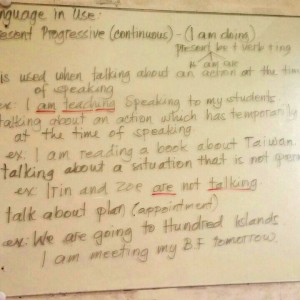 nguage in Use:
esent Progressive (continuous) - (I am doing)
present be + verb + ing
is am are
is used when talking about an action at the time
of speaking
ex: I am teaching Speaking to my students.
talking about an action which has temporarily
at the time of speaking
ex: I am reading a book about Taiwan.
talking about a situation that is not
ex: Irin and Zoe are not talking.
talk about plan (appointment)
ex: We are going to Hundred Islands
I am meeting my BF tomorrow.